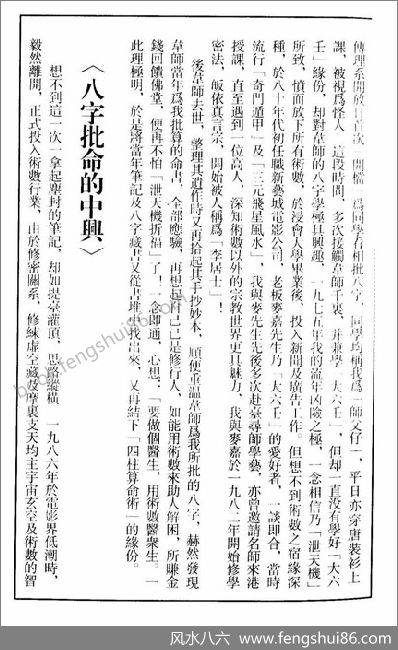 傳理系開放日首次「開檔」爲同學看相批八字，同學均稱我爲「師父仔」，平日亦穿唐裝衫上
課，被視爲怪人。這段時間，多次接觸韋師千里，並兼學「大六壬」，但却一直沒有學好「大六
壬」緣份，却對韋師的八字學極具興趣。一九七五年我的流年凶險之極，一念相信乃「泄天機」
所致，憤而放下所有術數，於浸會大學畢業後，投入新聞及廣告工作。但想不到術數之宿緣深
種，於八十年代初任職新藝城電影公司，老板麥嘉先生乃「大六壬」的愛好者，一談即合，當時
流行「奇門遁甲」及「三元飛星風水」，我與麥先生先後多次赴臺尋師學藝，亦曾邀請名師來港
授課，直至遇到一位高人，深知術數以外的宗教世界更具魅力，我與麥嘉於一九八二年開始修學
密法，皈依真言宗，開始被人稱爲「李居士」！
後韋師去世，整理其遺作時又再拾起其手抄妙本，順便重溫韋師爲我所批的八字，赫然發現
韋師當年爲我批算的命書，全部應驗，再想起自己已是修行人，如能用術數來助人解困，所賺金
錢回饋佛堂，便再不怕「泄天機折福」了！一念即通，心想：「要做個醫生，用術數醫衆生。」
此理極明，於是將當年筆記及八字藏書又從書堆中找出來，又再結下「四柱算命術」的緣份。
〈八字批命的中興〉
想不到這一次一拿起塵封的筆記，却如提壺灌頂，思路縱橫，一九八六年於電影界低潮時，
毅然離開，正式投入術數行業，由於修密關系，修練虛空藏及摩裏支天均主宇宙玄空及術數的智
风水八六 - www.fengshui86.com